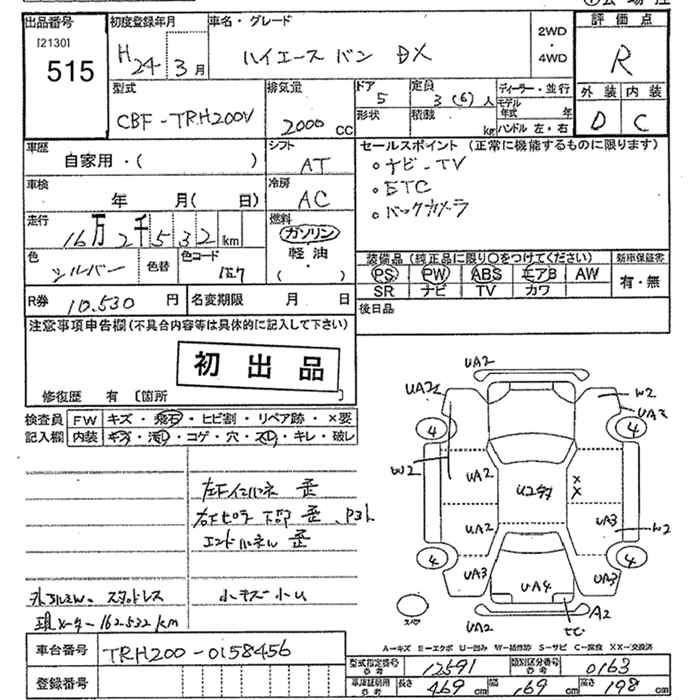 出品番号 初度登録年月 車名・グレード 2WD・4WD 評価点
[2130]
515
H 24年 3月
ハイエース バン DX
R
外装 内装
D C
型式 排気量 ドア 定員 ディーラー・並行
CBF-TRH200V 2000 CC 5 3(6)人
形状 積載 kg モデル年式 年
ハンドル 左・右
車歴 シフト セールスポイント (正常に機能するものに限ります)
自家用・( ) AT
・ナビ-TV
・ETC
・バックカメラ
車検 冷房
年 月( 日) AC
走行 燃料
16万2千532 km
ガソリン
軽油
・
( )
色 色替 色コード
シルバー 1E7
装備品 (純正品に限り○をつけてください) 新車保証書
PS PW ABS エアB AW 有・無
SR ナビ TV カワ
R券 10.530 円 名変期限 月 日
後日品
注意事項申告欄(不具合内容等は具体的に記入して下さい)
初出品
修復歴 有〔箇所 〕
検査員記入欄 FW キズ・飛石・ヒビ割・リペア跡・×要
内装 キズ・汚れ・コゲ・穴・スレ・キレ・破レ
左下インパネ 歪
右下ピラー下部 歪、P3ト
エンドパネル 歪
小キズ小U
外アルミW.スタッドレス
現メーター162532km
UA2
UA2 W2
UA3
4 4
W2
UA2 U2 XX
UA2 UA3 W2
4 4
UA3 UA4 UA3
スペア
UA2 A2
A=キズ E=エクボ U=凹み W=補修跡 S=サビ C=腐食 XX=交換済
車台番号 TRH200-0158456
登録番号
型式指定番号 参考 12591 類別区分番号 参考 0163
車庫証明用 参考 長さ 469 cm 幅 169 cm 高さ 198 cm